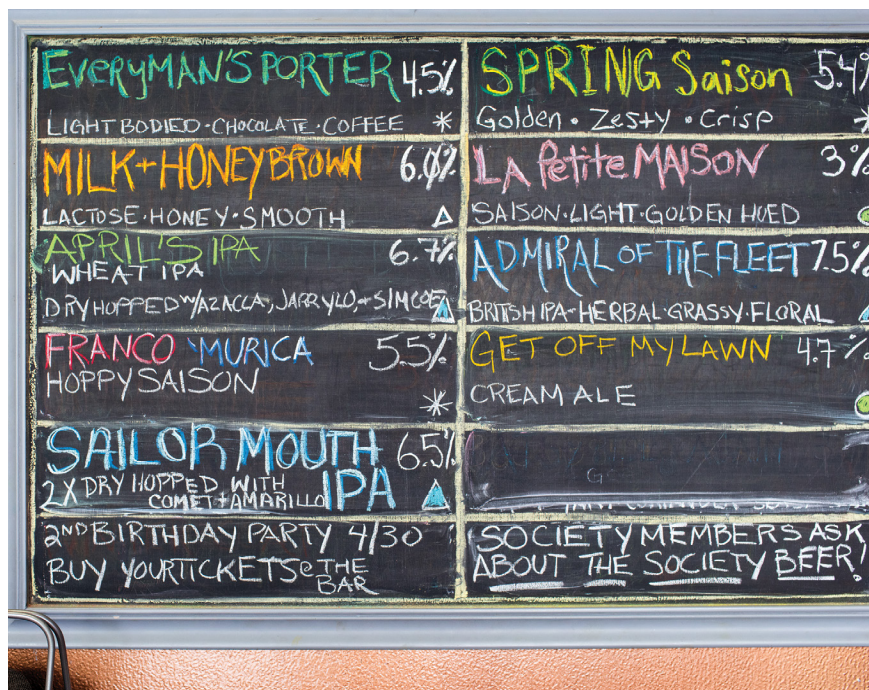 EVERYMAN'S PORTER 4.5%
LIGHT BODIED · CHOCOLATE · COFFEE *
MILK + HONEY BROWN 6.0%
LACTOSE · HONEY · SMOOTH
APRIL'S IPA 6.7%
WHEAT IPA
DRY HOPPED W/AZACCA, JARRYLO, + SIMCOE
FRANCO 'MURICA 5.5%
HOPPY SAISON
*
SAILOR MOUTH 6.5%
IPA
2X DRY HOPPED WITH
COMET + AMARILLO
2ND BIRTHDAY PARTY 4/30
BUY YOUR TICKETS @ THE
BAR
SPRING Saison 5.4%
Golden · Zesty · Crisp *
LA Petite MAISON 3%
SAISON · LIGHT · GOLDEN HUED
ADMIRAL OF THE FLEET 7.5%
BRITISH IPA · HERBAL · GRASSY · FLORAL
GET OFF MY LAWN 4.7%
CREAM ALE
SOCIETY MEMBERS ASK
ABOUT THE SOCIETY BEER!